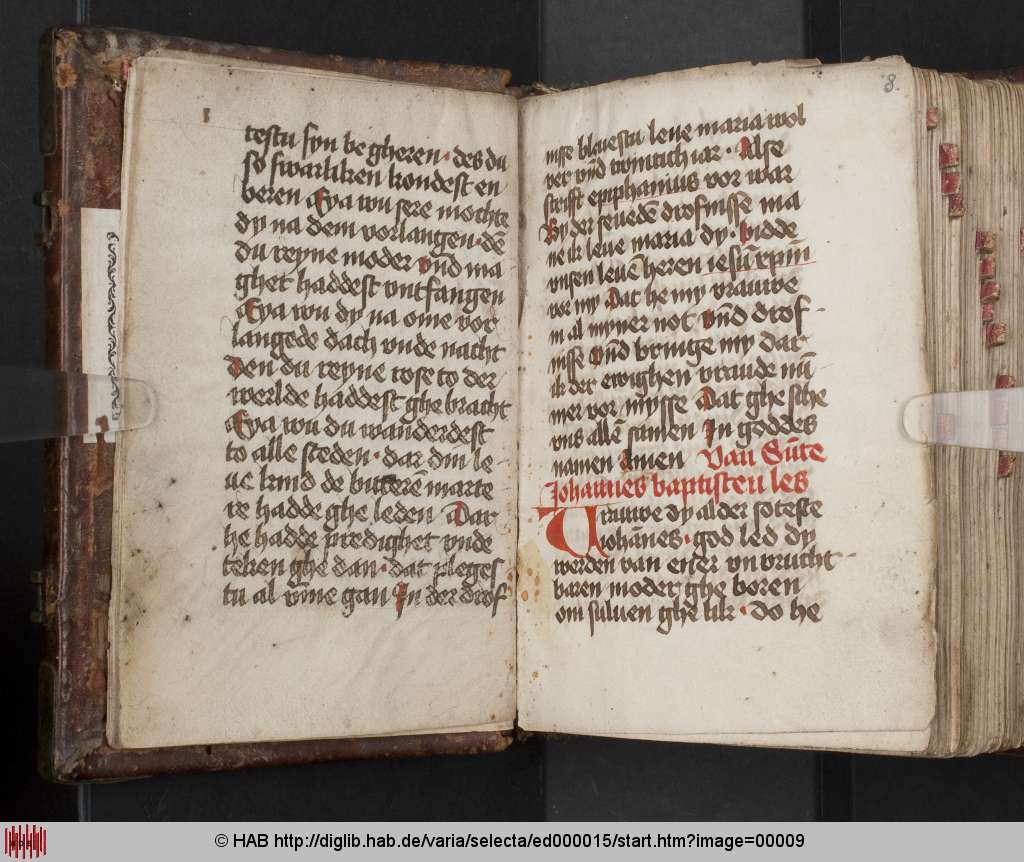 testu syn be gheren · des du
so swarliken kondest en
beren Eya wu sere mochte
dy na dem vorlangen · dē
du reyne moder vn̄d ma
ghet haddest vntfangen
Eya wu dy na ome vor
langede dach vnde nacht
Den du reyne rose to der
werlde haddest ghe bracht
Eya wu du wanderdest
to alle steden · dar din le
ue kind de bitterē marte
re hadde ghe leden Dar
he hadde predighet vnde
teken ghe dan · dat pleges
tu al vm̄e gan In der drof
8.
nisse bleuestu leue maria wol
ver vn̄d twintich iar · Alse
scrift epiphanius vor war
By der seuedē drofnisse ma
ne ik leue maria dy · bidde
vnsen leuē heren iesū xpm̄
vor my Dat he my vrauwe
in al myner not vn̄d drof
nisse vn̄d bringe my dar
ik der ewighen vraude nū
mer vor mysse Dat ghe sche
vns allē samen In goddes
namen Amen Van Sūte
Johannes baptisten les
Vrauwe dy alder soteste
iohānes · god led dy
werden van ener vn vrucht
baren moder ghe boren
om suluen ghe lik · do he
© HAB http://diglib.hab.de/varia/selecta/ed000015/start.htm?image=00009